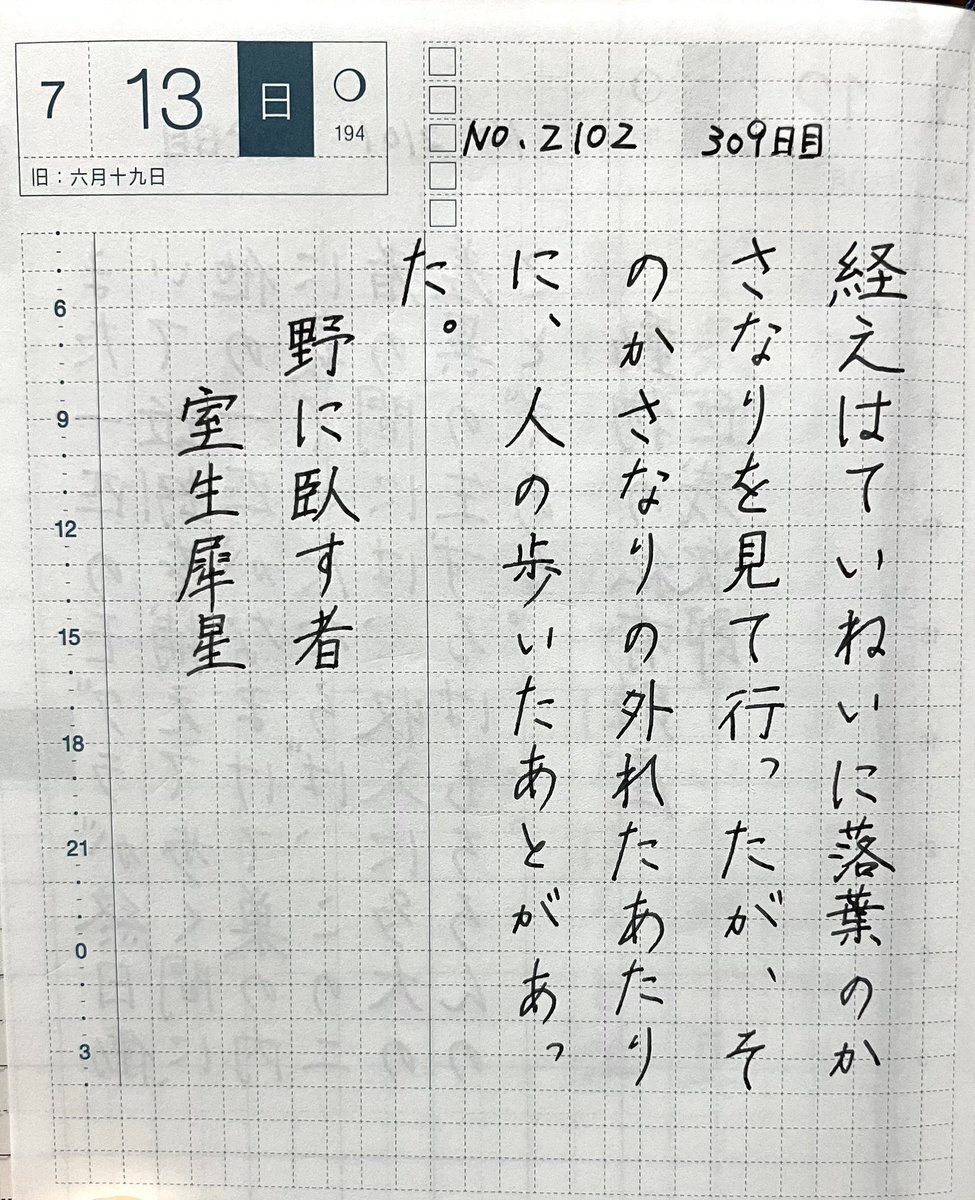 7 13 日
194
旧：六月十九日
NO.2102 309日目
経えはていねいに落葉のか
さなりを見て行ったが、そ
のかさなりの外れたあたり
に、人の歩いたあとがあっ
た。
野に臥す者
室生犀星
6
9
12
15
18
21
0
3